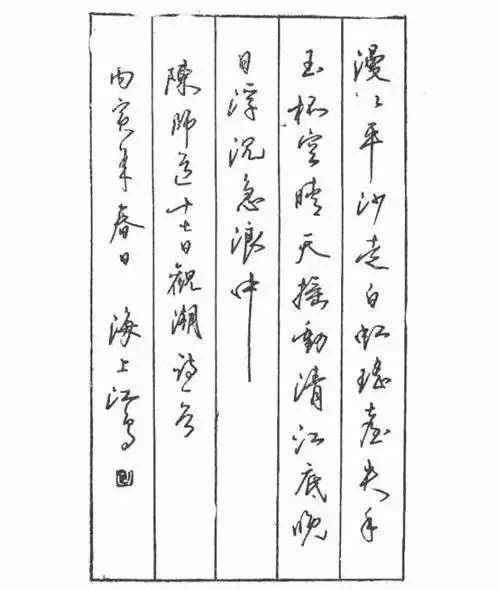 漫々平沙走白虹瑤臺失手
玉杯空晴天摇動清江底晚
日浮沉急浪中
陳師道十七日觀潮诗一首
丙寅年春日 海上江